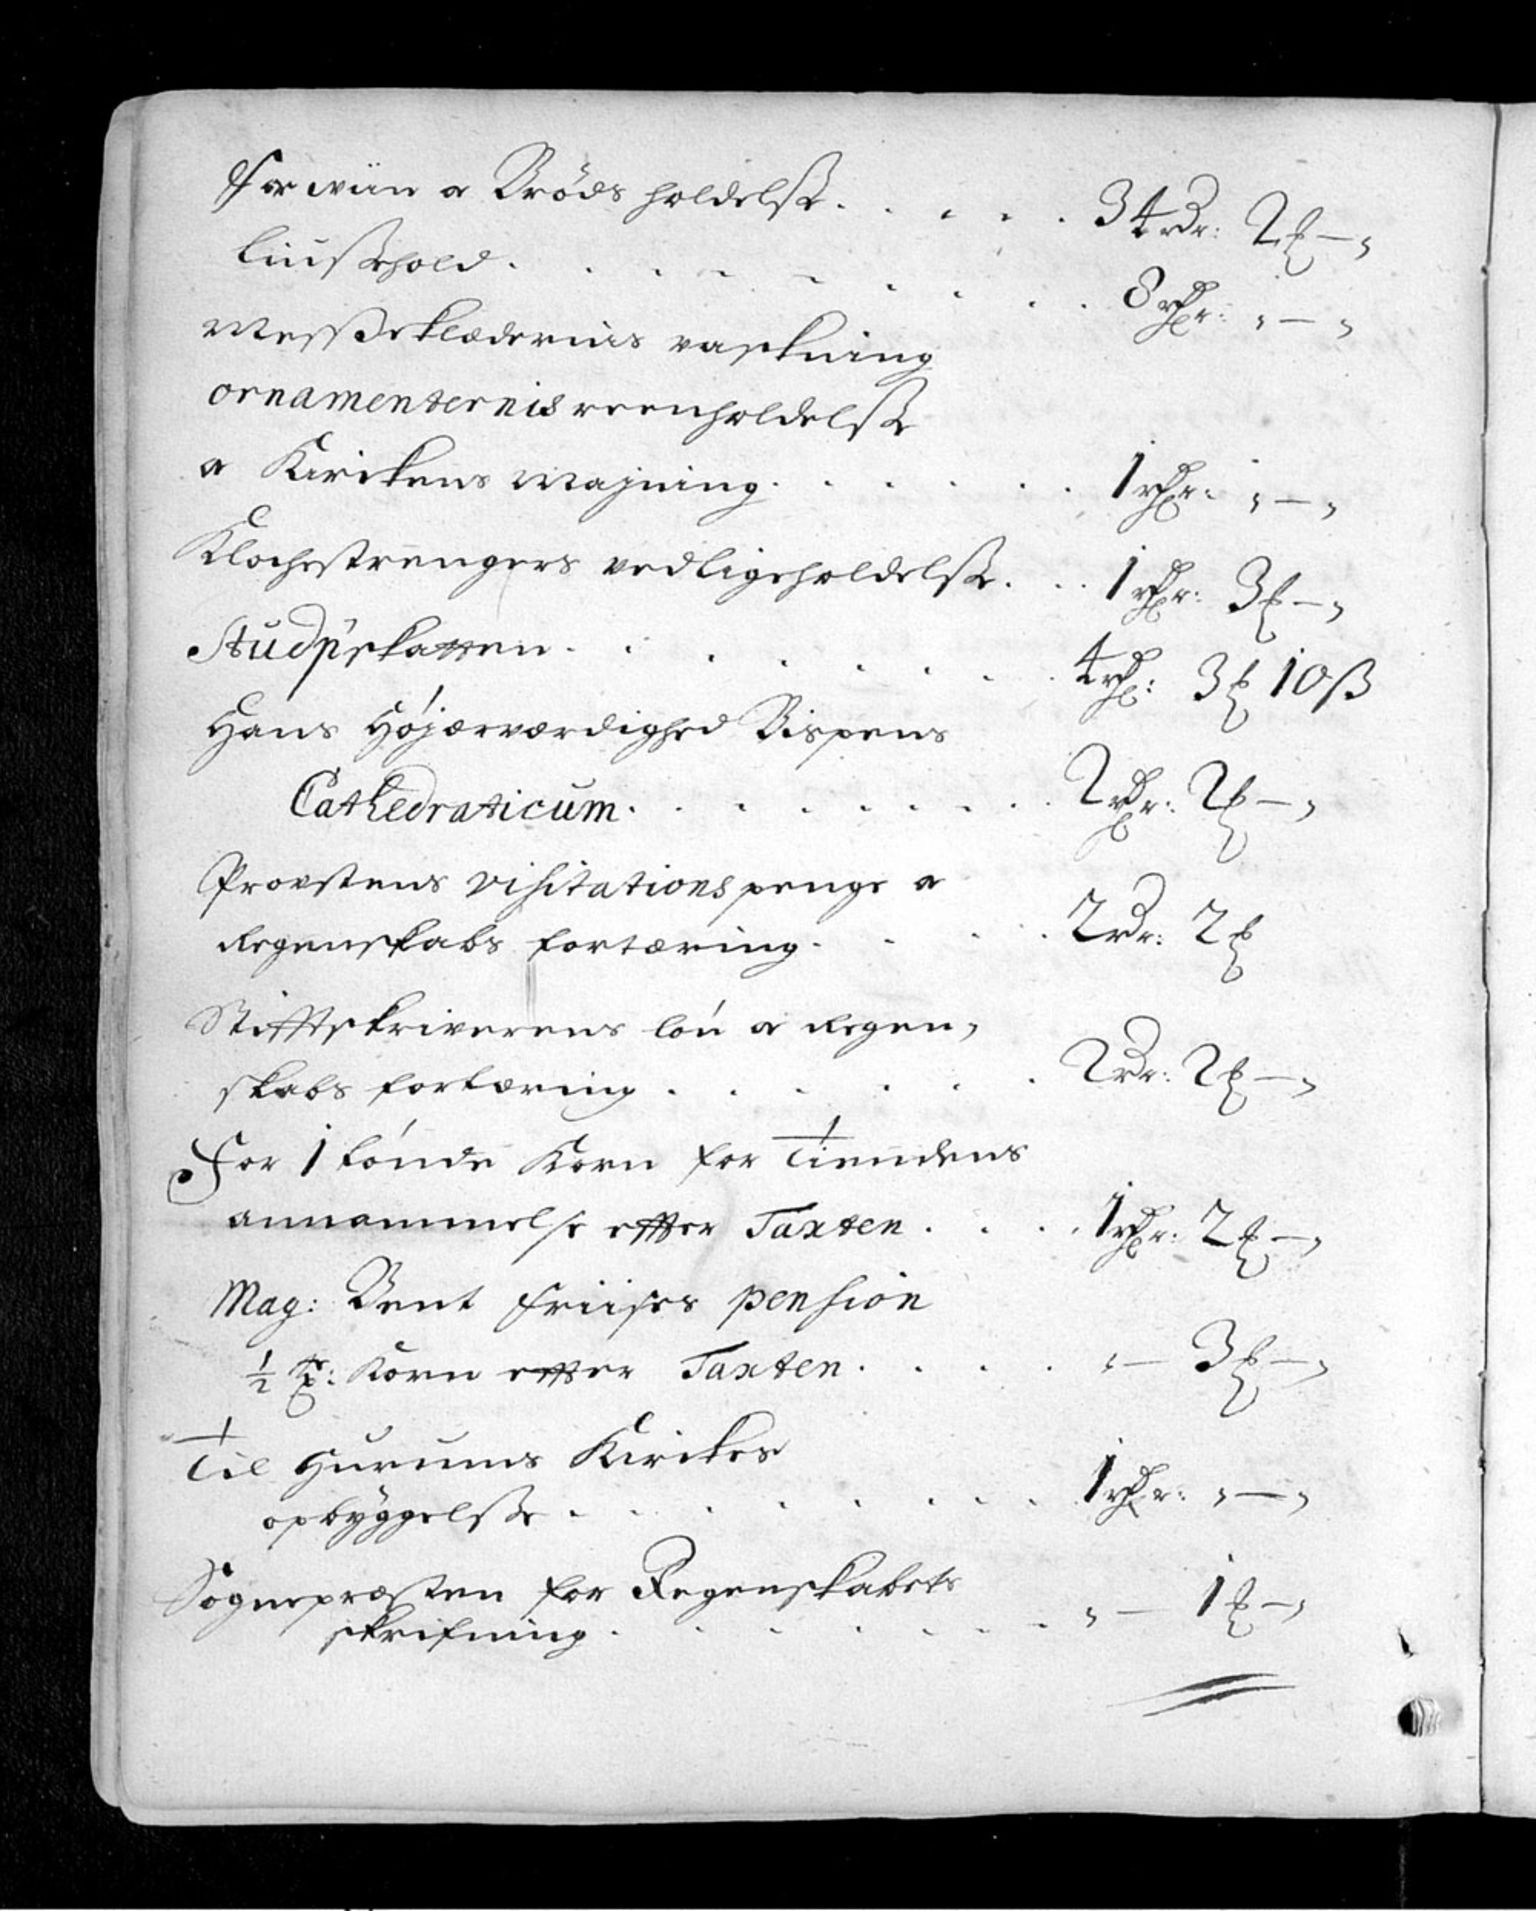 For wiin a Brøds holdelsse . . . . . 34 rdr: 2 ℳ – „
liussehold . . . . . . . . . 8 rdr: „ – „
Messeklædernis vaskning
ornamenternis reenholdelsse
a Kirckens Majning . . . . . . 1 rdr: „ – „
Klochestrengers vedligeholdelsse . . . 1 rdr: 3 ℳ – „
Studiskatten . . . . . . . 4 rd: 3 ℳ 10 ß
Hans Højærværdighed Bispens
Cathedraticum . . . . . . . 2 rdr: 2 ℳ – „
Provstens visitations penge a
Regenskabs fortæring . . . . 2 rdr: 2 ℳ
Stifftskriverens lön a Regen,
skabs fortæring . . . . . . 2 rdr: 2 ℳ – „
For 1 tønde Korn for Tiendens
annammelse effter Taxten . . . . 1 rdr: 2 ℳ – „
Mag: Bent Friises pension
1/2 Tr: Korn effter Taxten . . . . „ – 3 ℳ – „
Til Hurums Kirckes
opbÿggelsse . . . . . . . . 1 rdr: „ – „
Sognepræsten for Regenskabets
skrifning . . . . . . . „ – 1 ℳ – „